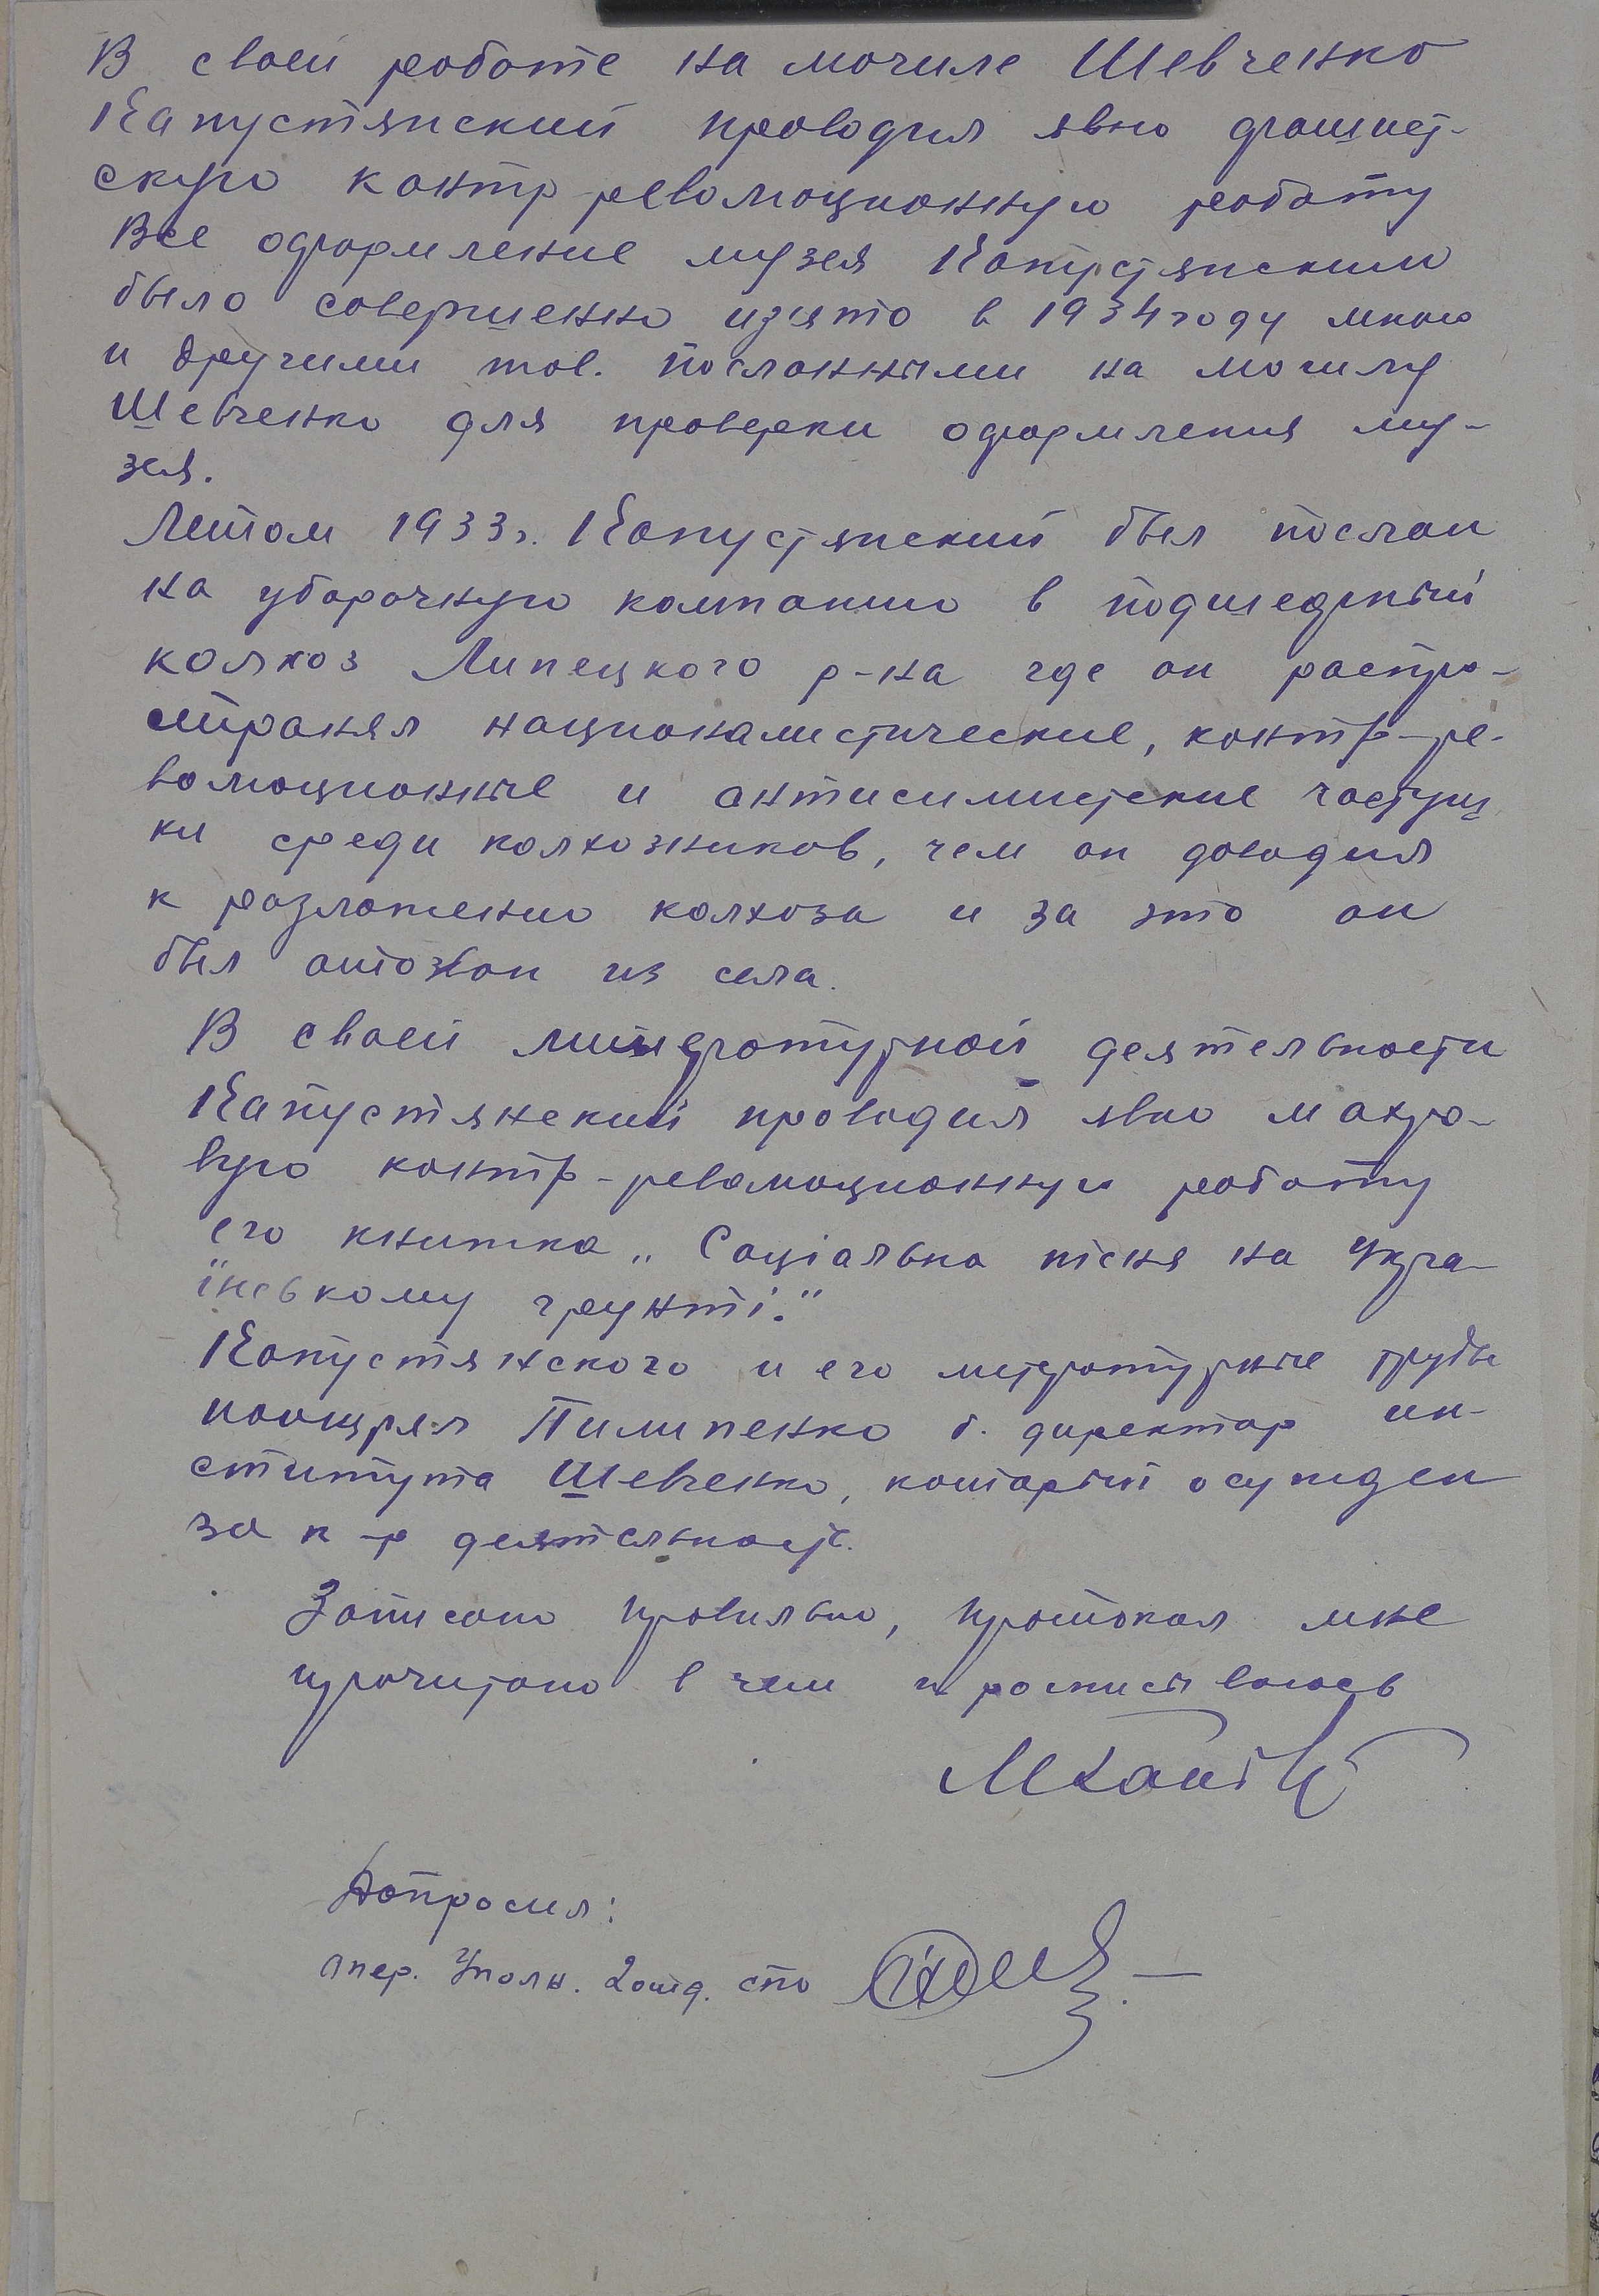 В своей работе на могиле Шевченко
Капустянский проводил явно фашист-
скую контр революционную работу
Все оформление музея Капустянским
было совершенно изято в 1934 году мною
и другими тов. посланными на могилу
Шевченко для проверки оформления му-
зея.
Летом 1933г. Капустянский был послан
на уборочную компанию в подшефный
колхоз Липецкого р-на где он распро-
странял националистические, контр-ре-
волюционные и антисимистские частуш
ки среди колхозников, чем он доводил
к разложению колхоза и за это он
был отозван из села.
В своей литературной деятельности
Капустянский проводил явно махро-
вую контр-революционную работу
его книжка „Соціальна пісня на Укра-
їнському грунті."
Капустянского и его литературные труды
поощрял Пилипенко б. директор ин-
ститута Шевченко, который осужден
за к-р деятельность.
Записано правильно, протокол мне
прочитано в чем и росписываюсь
Допросил:
Опер. Уполн. 2 отд. СПО